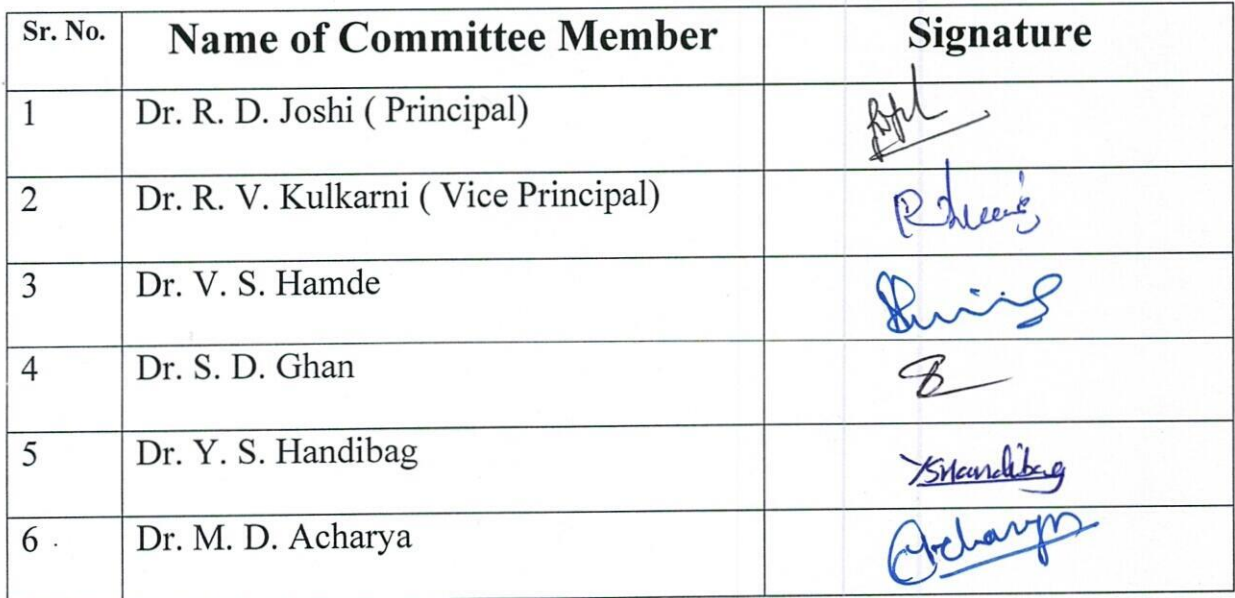 Sr. No. Name of Committee Member Signature
1 Dr. R. D. Joshi ( Principal)
2 Dr. R. V. Kulkarni ( Vice Principal)
3 Dr. V. S. Hamde
4 Dr. S. D. Ghan
5 Dr. Y. S. Handibag YSHandibag
6 Dr. M. D. Acharya Acharya